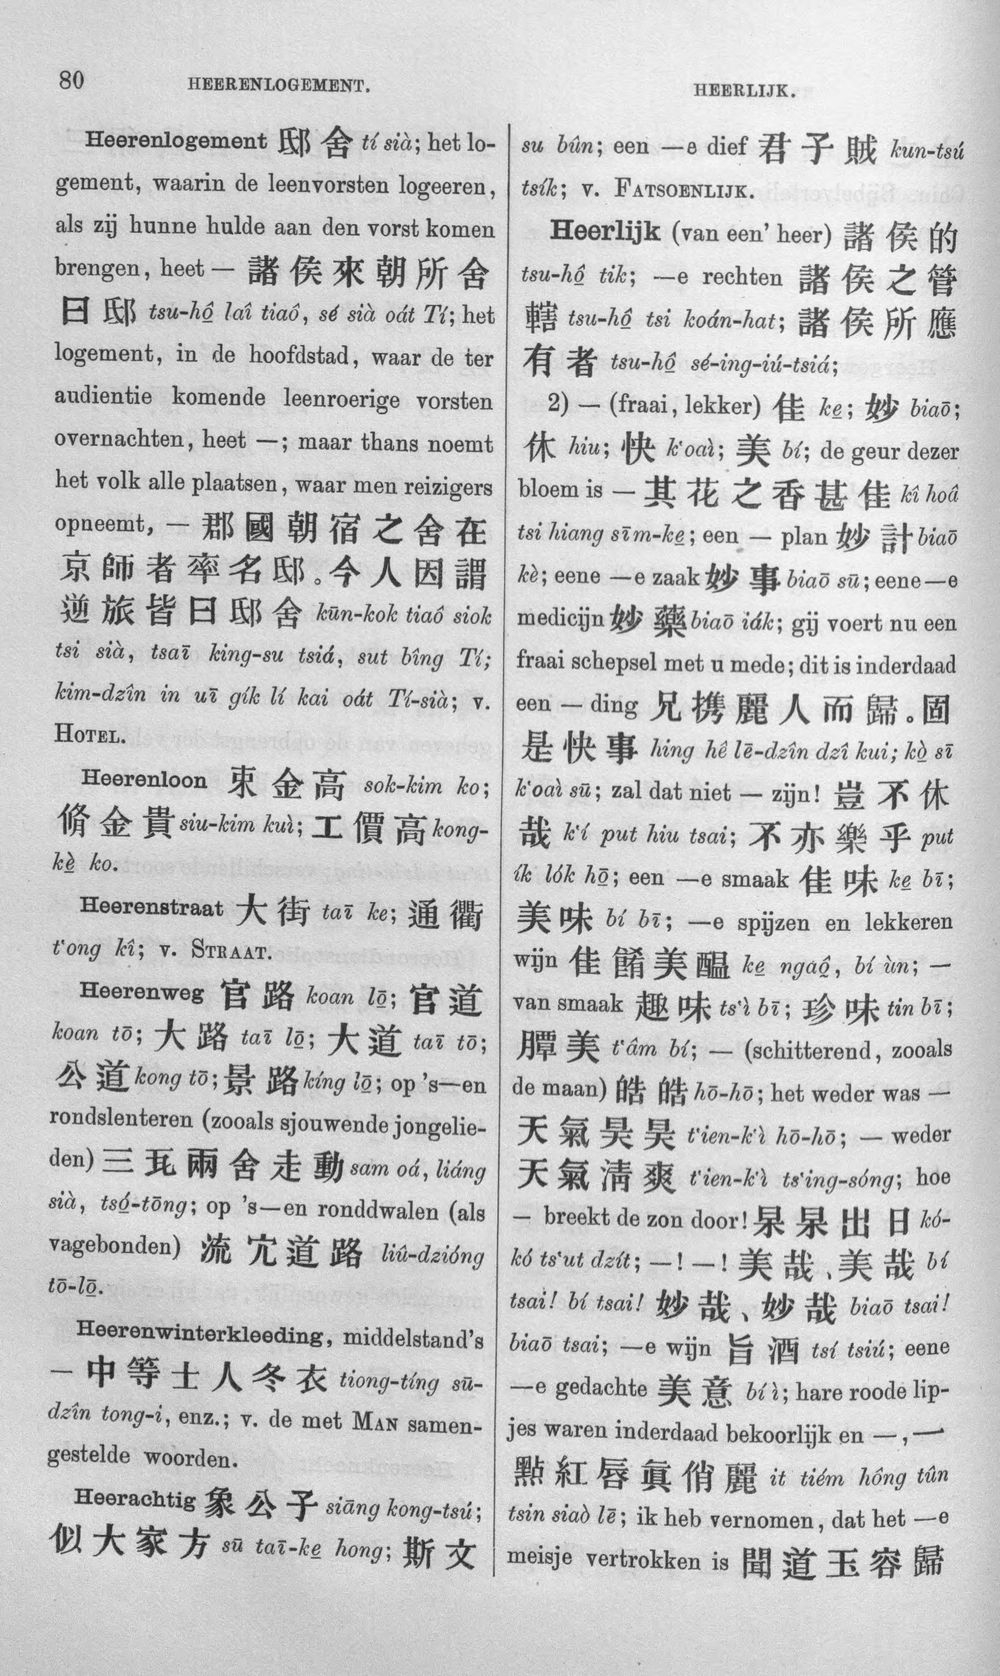 80
HEERENLOGEMENT.
HEERLIJK.
Heerenlogement 邸舍 tí sià; het lo-
gement, waarin de leenvorsten logeeren,
als zij hunne hulde aan den vorst komen
brengen, heet — 諸侯來朝所舍
曰邸 tsu-hô̤ laî tiaô, sé sià oát Tí; het
logement, in de hoofdstad, waar de ter
audientie komende leenroerige vorsten
overnachten, heet —; maar thans noemt
het volk alle plaatsen, waar men reizigers
opneemt, — 郡國朝宿之舍在
京師者率名邸。今人因謂
逆旅皆曰邸舍 kūn-kok tiaô siok
tsi sià, tsaī king-su tsiá, sut bîng Tí;
kim-dzîn in uī gík lí kai oát Tí-sià; v.
HOTEL.
Heerenloon 束金高 sok-kim ko;
脩金貴 siu-kim kuì; 工價高 kong-
kè̤ ko.
Heerenstraat 大街 taī ke; 通衢
t‘ong kî; v. STRAAT.
Heerenweg 官路 koan lō̤; 官道
koan tō; 大路 taī lō̤; 大道 taī tō;
公道 kong tō; 景路 kíng lō̤; op ’s—en
rondslenteren (zooals sjouwende jongelie-
den) 三瓦兩舍走動 sam oá, liáng
sià, tsó̤-tōng; op ’s—en ronddwalen (als
vagebonden) 流宂道路 liû-dzióng
tō-lō̤.
Heerenwinterkleeding, middelstand’s
— 中等士人冬衣 tiong-tíng sū-
dzîn tong-i, enz.; v. de met MAN samen-
gestelde woorden.
Heerachtig 象公子 siāng kong-tsú;
似大家方 sū taī-ke̤ hong; 斯文
su bûn; een —e dief 君子賊 kun-tsú
tsík; v. FATSOENLIJK.
Heerlijk (van een’ heer) 諸侯的
tsu-hô̤ tik; —e rechten 諸侯之管
轄 tsu-hô̤ tsi koán-hat; 諸侯所應
有者 tsu-hô̤ sé-ing-iú-tsiá;
2) — (fraai, lekker) 佳 ke̤; 妙 biaō;
休 hiu; 快 k‘oaì; 美 bí; de geur dezer
bloem is — 其花之香甚佳 kî hoâ
tsi hiang sīm-ke̤; een — plan 妙計 biaō
kè; eene —e zaak 妙事 biaō sū; eene —e
medicijn 妙藥 biaō iák; gij voert nu een
fraai schepsel met u mede; dit is inderdaad
een — ding 兄携麗人而歸。固
是快事 hing hê lē-dzîn dzî kui; kò̤ sī
k‘oaì sū; zal dat niet — zijn! 豈不休
哉 k‘í put hiu tsai; 不亦樂乎 put
ík lók hō̤; een —e smaak 佳味 ke̤ bī;
美味 bí bī; —e spijzen en lekkeren
wijn 佳餚美醞 ke̤ ngaô̤, bí ùn; —
van smaak 趣味 ts‘ì bī; 珍味 tin bī;
膻美 t‘âm bí; — (schitterend, zooals
de maan) 皓皓 hō-hō; het weder was —
天氣昊昊 t‘ien-k‘ì hō-hō; — weder
天氣清爽 t‘ien-k‘ì ts‘ing-sóng; hoe
— breekt de zon door! 杲杲出日 kó-
kó ts‘ut dzít; —! —! 美哉、美哉 bí
tsai! bí tsai! 妙哉、妙哉 biaō tsai!
biaō tsai; —e wijn 旨酒 tsí tsiú; eene
—e gedachte 美意 bí ì; hare roode lip-
jes waren inderdaad bekoorlijk en —, 一
點紅唇眞俏麗 it tiém hông tûn
tsin siaò lē; ik heb vernomen, dat het —e
meisje vertrokken is 聞道玉容歸